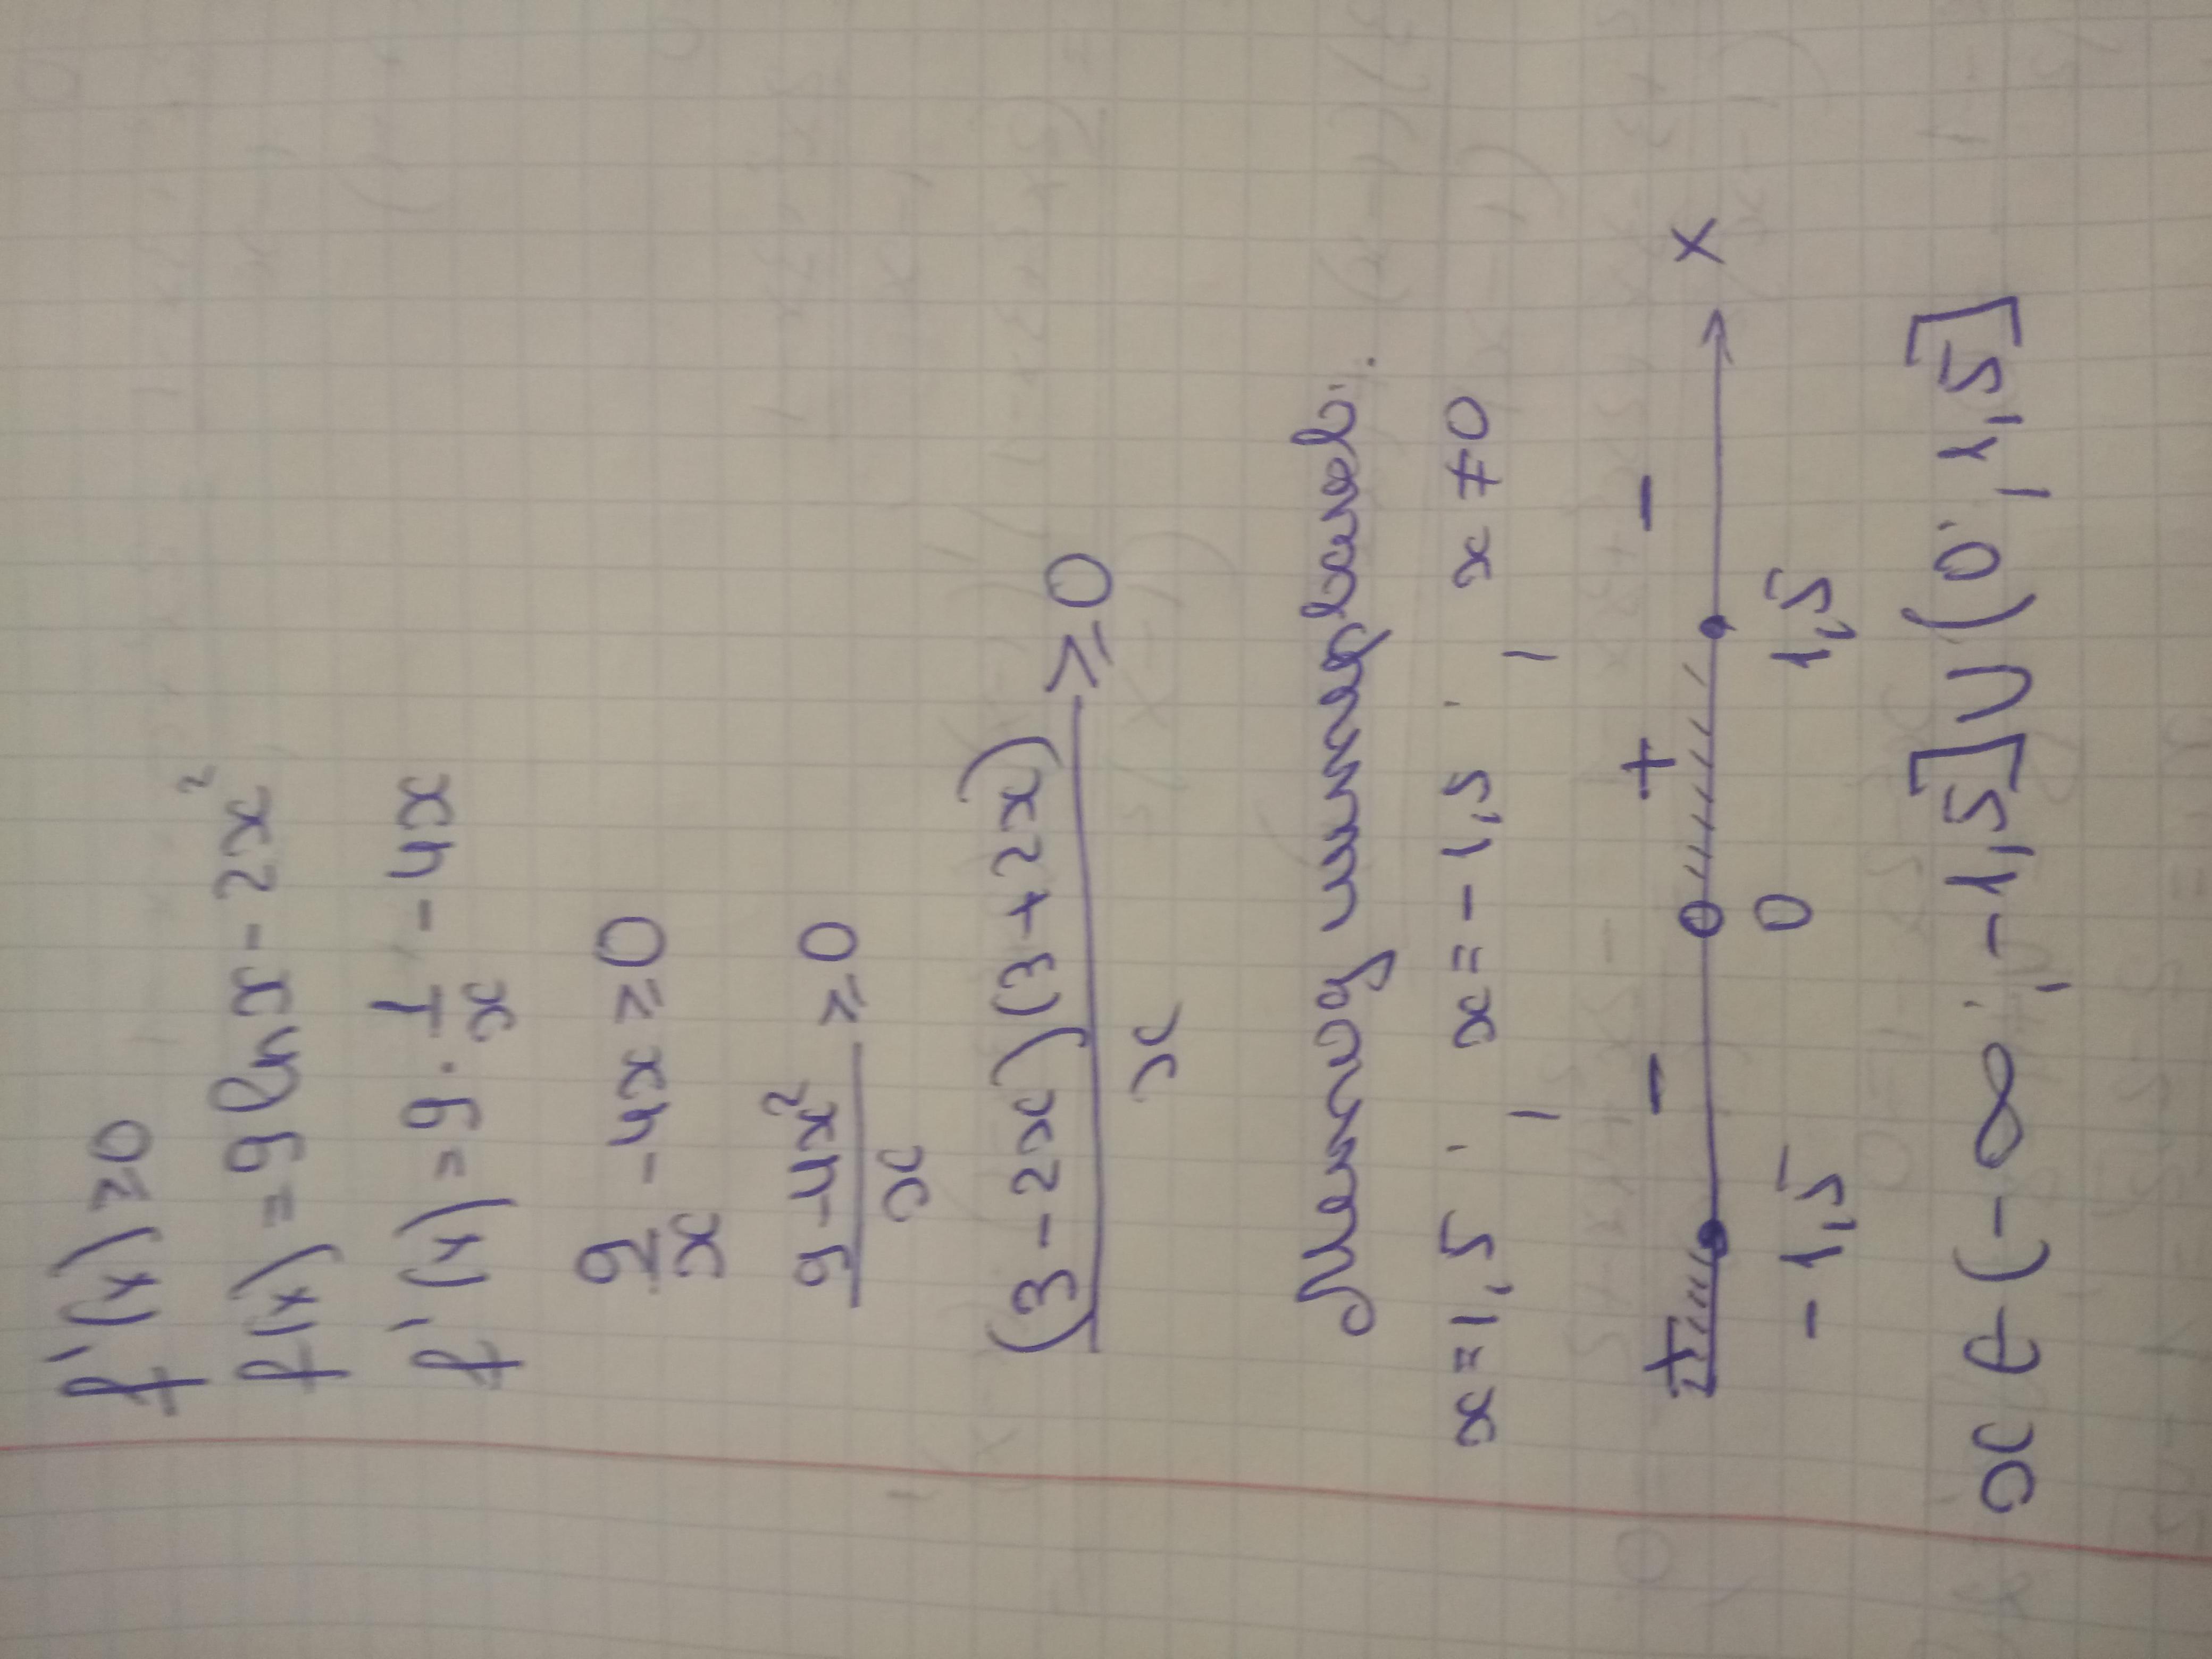 f'(x) ≥ 0
f(x) = 9 ln x - 2x²
f'(x) = 9 · 1/x - 4x
9/x - 4x ≥ 0
(9 - 4x²)/x ≥ 0
((3 - 2x)(3 + 2x))/x ≥ 0
Метод интервалов.
x = 1,5 ; x = - 1,5 ; x ≠ 0
+ - + -
-1,5 0 1,5 x
x ∈ (-∞; -1,5] ∪ (0; 1,5]